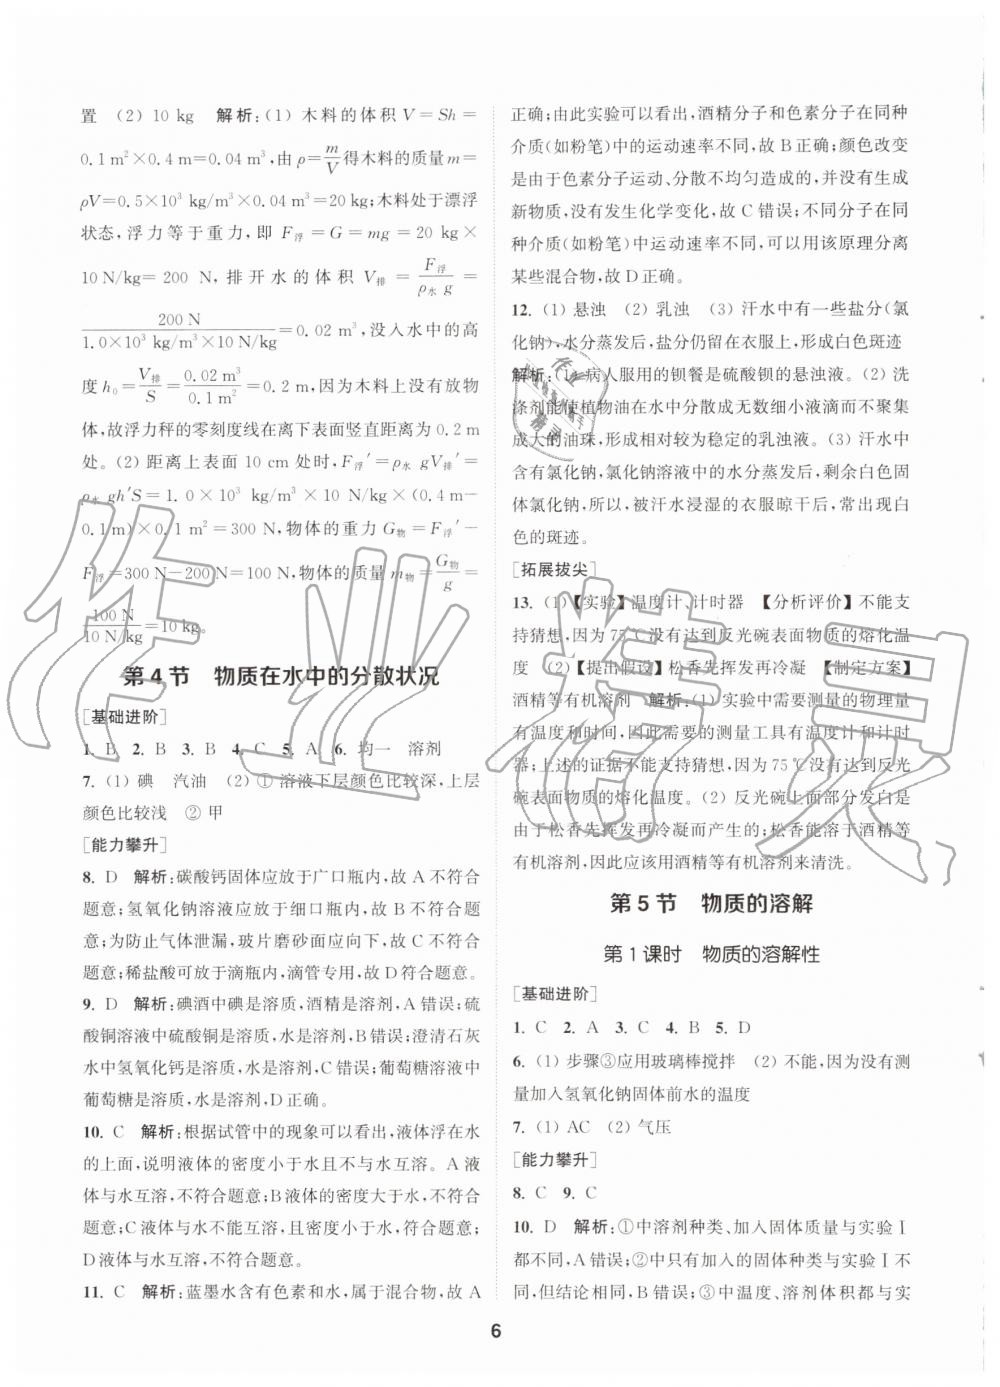 置 (2) 10 kg 解析:(1) 木料的体积 V = Sh =
0.1 m²×0.4 m=0.04 m³,由 ρ=m/V得木料的质量 m=
ρV=0.5×10³ kg/m³×0.04 m³=20 kg;木料处于漂浮
状态,浮力等于重力,即 F浮=G=mg=20 kg×
10 N/kg= 200 N,排开水的体积 V排 = F浮/ρ水 g =
200 N/1.0×10³ kg/m³×10 N/kg=0.02 m³,没入水中的高
度 h₀=V排/S=0.02 m³/0.1 m²=0.2 m,因为木料上没有放物
体,故浮力秤的零刻度线在离下表面竖直距离为 0.2 m
处。(2) 距离上表面 10 cm 处时,F浮′=ρ水 gV排′=
ρ水 gh′S=1.0×10³ kg/m³×10 N/kg×(0.4 m-
0.1 m)×0.1 m²=300 N,物体的重力 G物=F浮′-
F浮=300 N-200 N=100 N,物体的质量 m物=G物/g=
100 N/10 N/kg=10 kg。
第 4 节 物质在水中的分散状况
[基础进阶]
1. B 2. B 3. B 4. C 5. A 6. 均一 溶剂
7. (1) 碘 汽油 (2) ① 溶液下层颜色比较深,上层
颜色比较浅 ② 甲
[能力攀升]
8. D 解析:碳酸钙固体应放于广口瓶内,故 A 不符合
题意;氢氧化钠溶液应放于细口瓶内,故 B 不符合题
意;为防止气体泄漏,玻片磨砂面应向下,故 C 不符合
题意;稀盐酸可放于滴瓶内,滴管专用,故 D 符合题意。
9. D 解析:碘酒中碘是溶质,酒精是溶剂,A 错误;硫
酸铜溶液中硫酸铜是溶质,水是溶剂,B 错误;澄清石灰
水中氢氧化钙是溶质,水是溶剂,C 错误;葡萄糖溶液中
葡萄糖是溶质,水是溶剂,D 正确。
10. C 解析:根据试管中的现象可以看出,液体浮在水
的上面,说明液体的密度小于水且不与水互溶。A 液
体与水互溶,不符合题意;B 液体的密度大于水,不符合
题意;C 液体与水不能互溶,且密度小于水,符合题意;
D 液体与水互溶,不符合题意。
11. C 解析:蓝墨水含有色素和水,属于混合物,故 A
正确;由此实验可以看出,酒精分子和色素分子在同种
介质(如粉笔)中的运动速率不同,故 B 正确;颜色改变
是由于色素分子运动、分散不均匀造成的,并没有生成
新物质,没有发生化学变化,故 C 错误;不同分子在同
种介质(如粉笔)中运动速率不同,可以用该原理分离
某些混合物,故 D 正确。
12. (1) 悬浊 (2) 乳浊 (3) 汗水中有一些盐分(氯
化钠),水分蒸发后,盐分仍留在衣服上,形成白色斑迹
解析:(1) 病人服用的钡餐是硫酸钡的悬浊液。(2) 洗
涤剂能使植物油在水中分散成无数细小液滴而不聚集
成大的油珠,形成相对较为稳定的乳浊液。(3) 汗水中
含有氯化钠,氯化钠溶液中的水分蒸发后,剩余白色固
体氯化钠,所以,被汗水浸湿的衣服晾干后,常出现白
色的斑迹。
[拓展拔尖]
13. (1)【实验】温度计、计时器 【分析评价】不能支
持猜想,因为 75 ℃没有达到反光碗表面物质的熔化温
度 (2)【提出假设】松香先挥发再冷凝 【制定方案】
酒精等有机溶剂 解析:(1) 实验中需要测量的物理量
有温度和时间,因此需要的测量工具有温度计和计时
器;上述的证据不能支持猜想,因为 75 ℃没有达到反光
碗表面物质的熔化温度。(2) 反光碗上面部分发白是
由于松香先挥发再冷凝而产生的;松香能溶于酒精等
有机溶剂,因此应该用酒精等有机溶剂来清洗。
第 5 节 物质的溶解
第 1 课时 物质的溶解性
[基础进阶]
1. C 2. A 3. C 4. B 5. D
6. (1) 步骤③应用玻璃棒搅拌 (2) 不能,因为没有测
量加入氢氧化钠固体前水的温度
7. (1) AC (2) 气压
[能力攀升]
8. C 9. C
10. D 解析:①中溶剂种类、加入固体质量与实验Ⅰ
都不同,A 错误;②中只有加入的固体种类与实验Ⅰ不
同,但结论相同,B 错误;③中温度、溶剂体积都与实
6
作业精灵